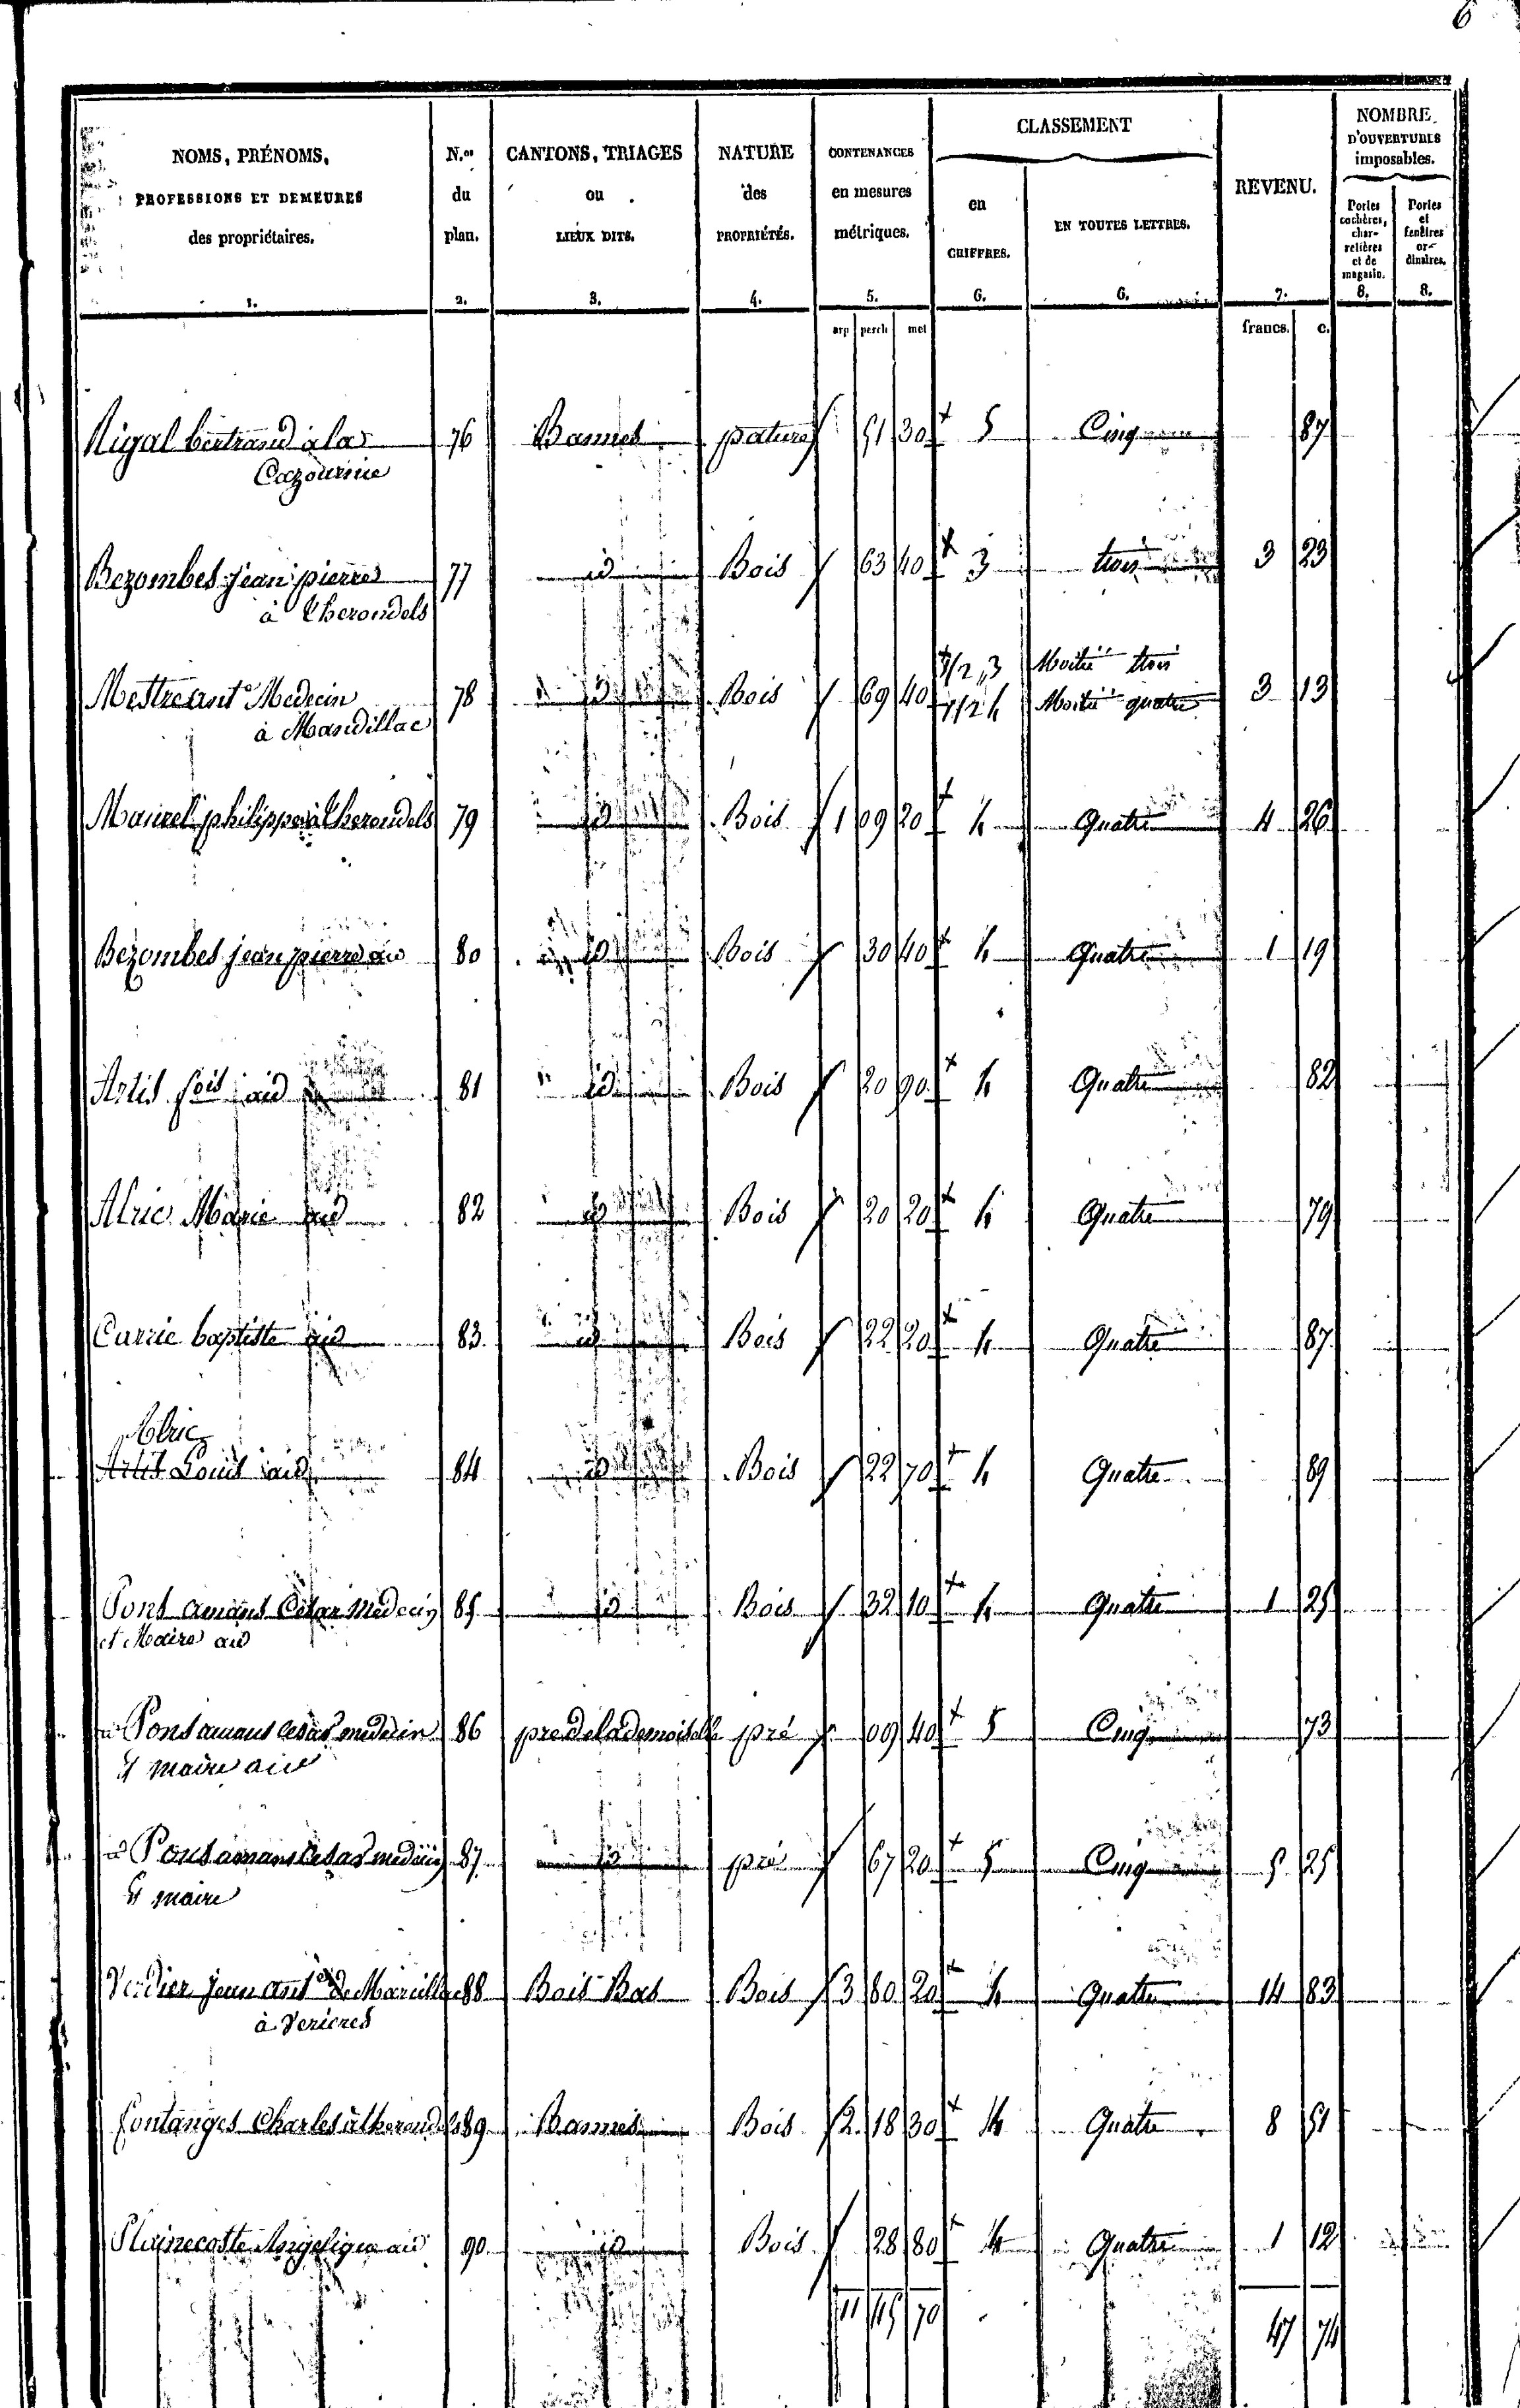 6
NOMS, PRÉNOMS, PROFESSIONS ET DEMEURES des propriétaires. 1.
N.os du plan. 2.
CANTONS, TRIAGES ou LIEUX DITS. 3.
NATURE des PROPRIÉTÉS. 4.
CONTENANCES en mesures métriques. 5.
CLASSEMENT
en CHIFFRES. 6.
EN TOUTES LETTRES. 6.
REVENU. 7.
NOMBRE D'OUVERTURES imposables.
Portes cochères, charretières et de magasin. 8.
Portes et fenêtres ordinaires. 8.
arp perch met francs. c.
Rigal bertrand à la 76 Bannes pature 51 30 5 Cinq 87
Cazournie
Bezombes jean pierre 77 id Bois 63 40 3 trois 3 23
à Therondels
1/2 3 Moitié trois
Mestre ant.e Medecin 78 id Bois 69 40 3 13
à Mandillac 1/2 4 Moitié quatre
Maurel philippe à Therondels 79 id Bois 1 09 20 4 Quatre 4 26
Bezombes jean pierre aud 80 id Bois 30 40 4 Quatre 1 19
Artis fois aud 81 id Bois 20 90 4 Quatre 82
Alric Marie aud 82 id Bois 20 20 4 Quatre 79
Currie baptiste aud 83 id Bois 22 20 4 Quatre 87
Alric
Artis Louis aud 84 id Bois 22 70 4 Quatre 89
Pons amans Cesar Medecin 85 id Bois 32 10 4 Quatre 1 25
et Maire aud
Pons amans Cesar medecin 86 pre de la demoiselle pré 09 40 5 Cinq 73
et maire aud
Pons amans Cesar medecin 87 id pré 67 20 5 Cinq 5 25
et maire
Verdier jean ant.e de Marcillac 88 Bois Bas Bois 3 80 20 4 Quatre 14 83
à Verieres
fontanges Charles à therondels 89 Bannes Bois 2 18 30 4 Quatre 8 51
Plainecoste Angelique aud 90 id Bois 28 80 4 Quatre 1 12
11 45 70 47 74